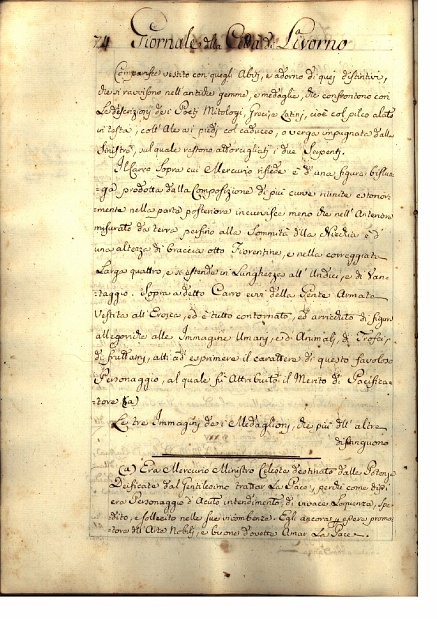 74 Giornale della Città di Livorno
Comparisce vestito con quegli Abiti, e adorno di quei distintivi,
che si ravvisono nell'antiche gemme, e medaglie, che confrontono con
Le descrizioni de i Poeti Mitologi, Greci, e Latini, cioè col pileo alato
in testa, coll'Ale ai piedi, col caduceo, o verga impugnata dalla
Sinistra, sul quale restono attorcigliati i due Serpenti.
Il Carro sopra cui Mercurio risiede è d'una figura bislun=
=ga prodotta dalla Composizione di più curve riunite esterior=
=mente nella parte posteriore incurvisce meno che nell'Anteriore
misurato da terra persino alla Sommità della è d'
una altezza di Braccia otto Fiorentine, e nella correggiata
Larga quattro, e si estende in Lunghezza all'Undici, e di Van=
=taggio. Sopra a detto Carro evvi della Gente Armata
Vestita all'Eroica, ed è tutto contornato, ed arricchito di figure
allegoriche alle Immagine Umani, e d'Animali, di Trofei,
di frutta atti ad esprimere il carattere di questo favoloso
Personaggio, al quale fù Attribuito il Merito di Pacifica=
=tore (a)
Le tre Immagini de i Medaglioni, che più dell'altre
distinguono
(a) Era Mercurio Ministro Celeste destinato dalle Potenze
Deificate dal Gentilesimo trattar La Pace, perché come
era Personaggio d'Acuto intendimento, di vivace Loquenza, spe=
dito, e sollecito nelle sue incombenze. Egli ancora era promo=
=tore dell'Arte Nobili, e buone dovette Amar La Pace.